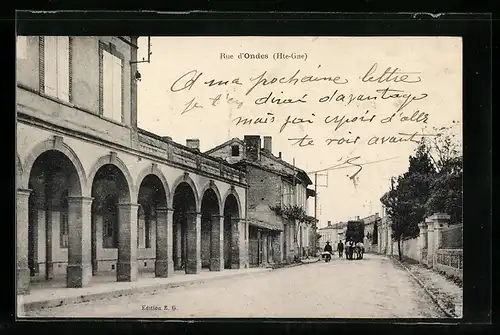 Rue d'Ondes (Hte-Gne)
A ma prochaine lettre
je t'en dirai d'avantage
mais j'ai espoir d'aller
te revoir avant
Edition E. G.